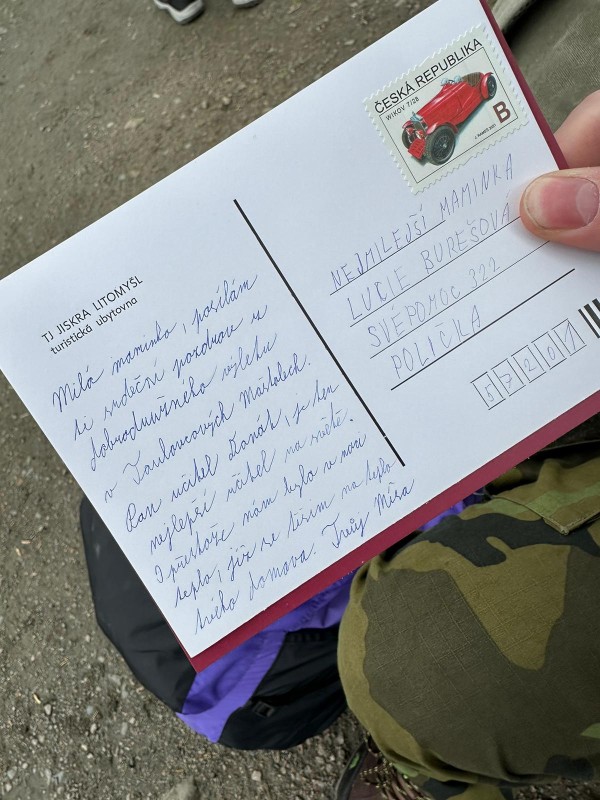 TJ JISKRA LITOMYŠL
turistická ubytovna
Milá maminko, posílám
ti srdeční pozdrav z
dobrodružného výletu
v Toulovcových Maštalech.
Pan učitel je ten
nejlepší učitel na světě.
I přestože nám bylo v noci
teplo, již se těším na teplo
tvého domova. Tvůj Míša
ČESKÁ REPUBLIKA
WIKOV 7/28
B
NEJMILEJŠÍ MAMINKA
LUCIE BUREŠOVÁ
SVÉPOMOC 322
POLIČKA
57201